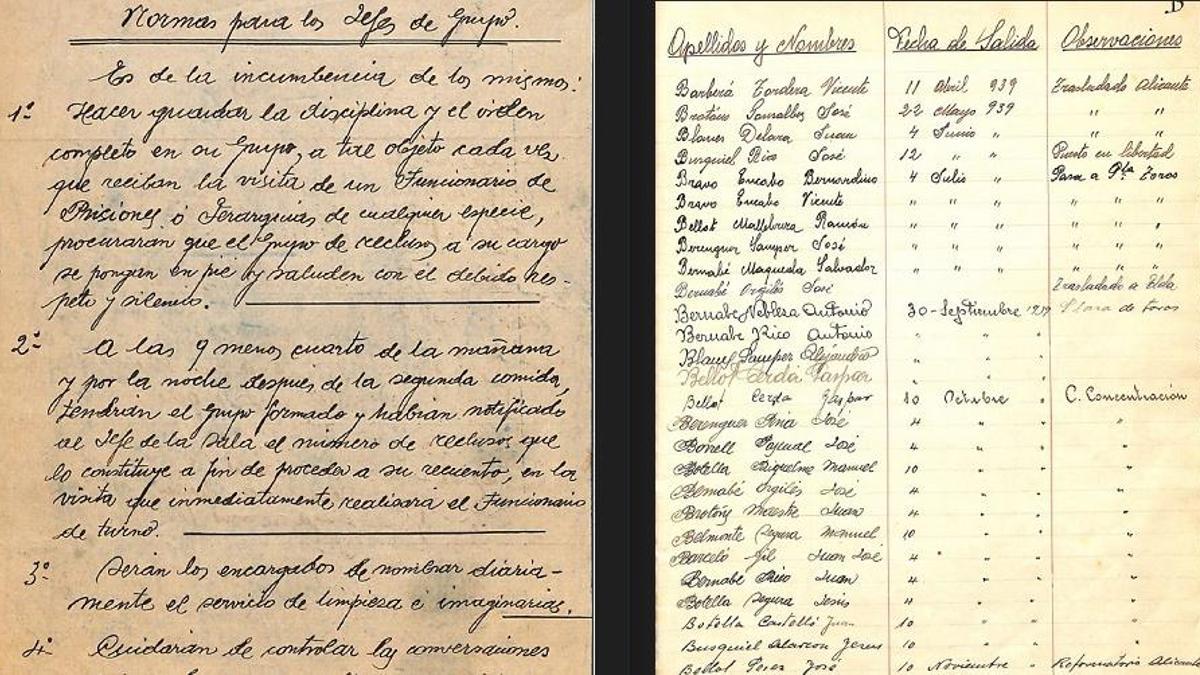 Normas para los Jefes de Grupo.
Es de la incumbencia de los mismos:
1º Hacer guardar la disciplina y el orden
completo en su Grupo, a tal objeto cada vez
que reciban la visita de un Funcionario de
Prisiones ó Jerarquias de cualquier especie,
procuraran que el Grupo de reclusos a su cargo
se pongan en pié y saluden con el debido res-
peto y silencio.
2º A las 9 menos cuarto de la mañana
y por la noche despues de la segunda comida,
tendrán el Grupo formado y habrán notificado
al Jefe de la Sala el número de reclusos que
lo constituye a fin de proceder a su recuento, en la
visita que inmediatamente realizará el Funcionario
de turno.
3º Serán los encargados de nombrar diaria-
mente el servicio de limpieza é imaginarias.
4º Cuidarán de controlar las conversaciones
B
Apellidos y Nombres Fecha de Salida Observaciones
Barberá Tordera Vicente 11 Abril 939 Trasladado Alicante
Brotóns José 22 Mayo 939 " "
Blanes Delara Juan 4 Junio " " "
Busquiel Rico José 12 " " Puesto en libertad
Bravo Encabo Bernardino 4 Julio " Pasa a Pza. Toros
Bravo Encabo Vicente " " " " " "
Bellot Ramón " " " " " "
Berenguer Samper José " " " " " "
Bernabé Maqueda Salvador " " " " " "
Bernabé Orgilés José Trasladado a Elda
Bernabe Antonio 30 - Septiembre 1939 Plaza de toros
Bernabe Rico Antonio " " "
Blanes Samper Alejandro " "
Bellot Cerdá Gaspar "
Bellot Cerda Gaspar 10 Octubre " C. Concentración
Berenguer Piña José 4 " " "
Bonell Pascual José 4 " " "
Botella Riquelme Manuel 10 " " "
Bernabé Orgilés José 4 " " "
Brotóns Maestre Juan 4 " " "
Belmonte Segura Manuel 10 " " "
Barceló Gil Juan José 4 " " "
Bernabe Rico Juan 4 " " "
Botella Segura Jesús 4 " " "
Botella Castelló Juan 10 " " "
Busquiel Alarcon Jesus 10 " " "
Bellot Perez José 10 Noviembre " Reformatorio Alicante